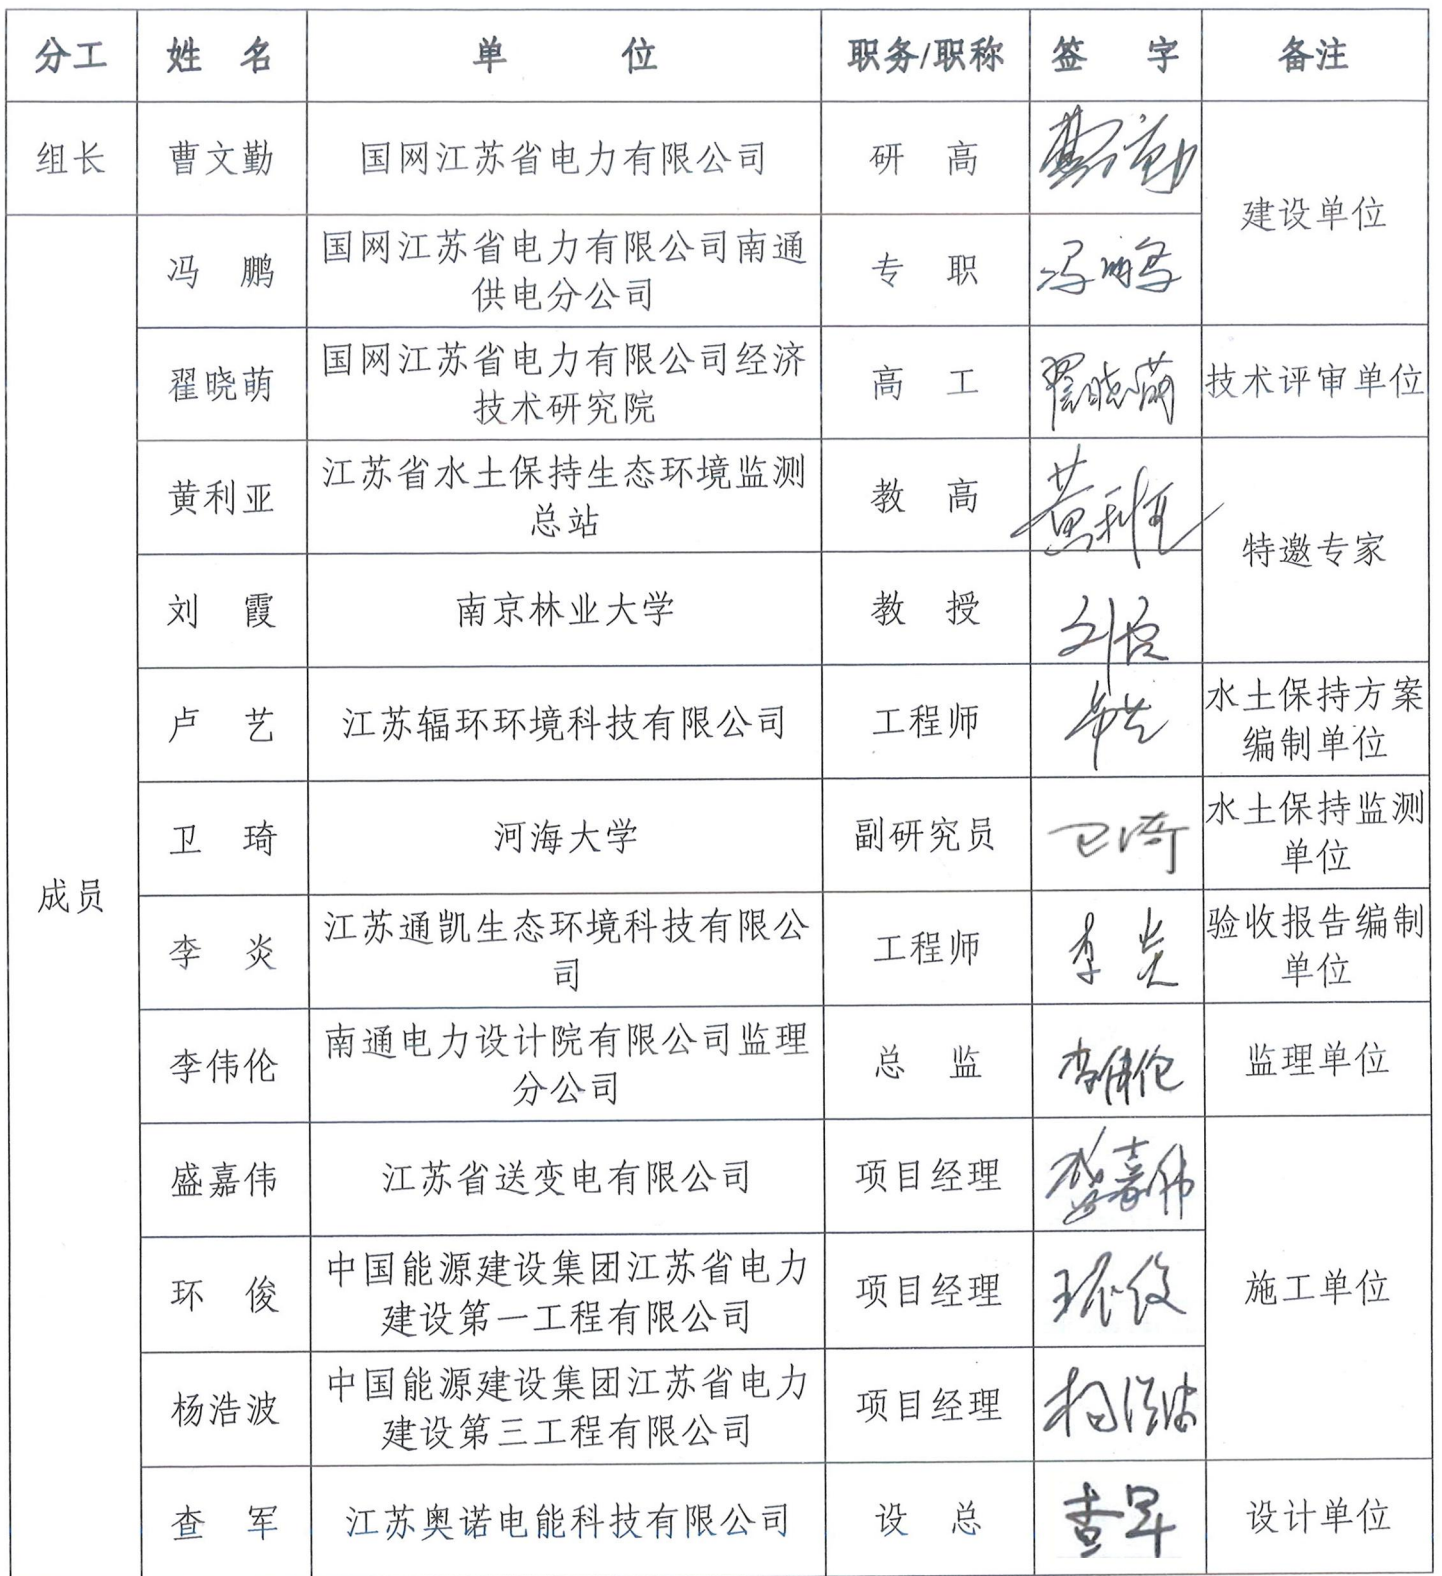 分工 姓 名 单 位 职务/职称 签 字 备注
组长 曹文勤 国网江苏省电力有限公司 研 高 曹文勤
建设单位
冯 鹏 国网江苏省电力有限公司南通
供电分公司 专 职 冯鹏
翟晓萌 国网江苏省电力有限公司经济
技术研究院 高 工 翟晓萌 技术评审单位
黄利亚 江苏省水土保持生态环境监测
总站 教 高 黄利亚
特邀专家
刘 霞 南京林业大学 教 授 刘霞
卢 艺 江苏辐环环境科技有限公司 工程师 卢艺 水土保持方案
编制单位
卫 琦 河海大学 副研究员 卫琦 水土保持监测
单位
成员
李 炎 江苏通凯生态环境科技有限公
司 工程师 李炎 验收报告编制
单位
李伟伦 南通电力设计院有限公司监理
分公司 总 监 李伟伦 监理单位
盛嘉伟 江苏省送变电有限公司 项目经理 盛嘉伟
环 俊 中国能源建设集团江苏省电力
建设第一工程有限公司 项目经理 环俊 施工单位
杨浩波 中国能源建设集团江苏省电力
建设第三工程有限公司 项目经理 杨浩波
查 军 江苏奥诺电能科技有限公司 设 总 查军 设计单位